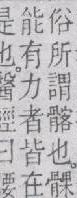 俗所謂髂也。髁
能有力者皆在
是也。醫經曰腰